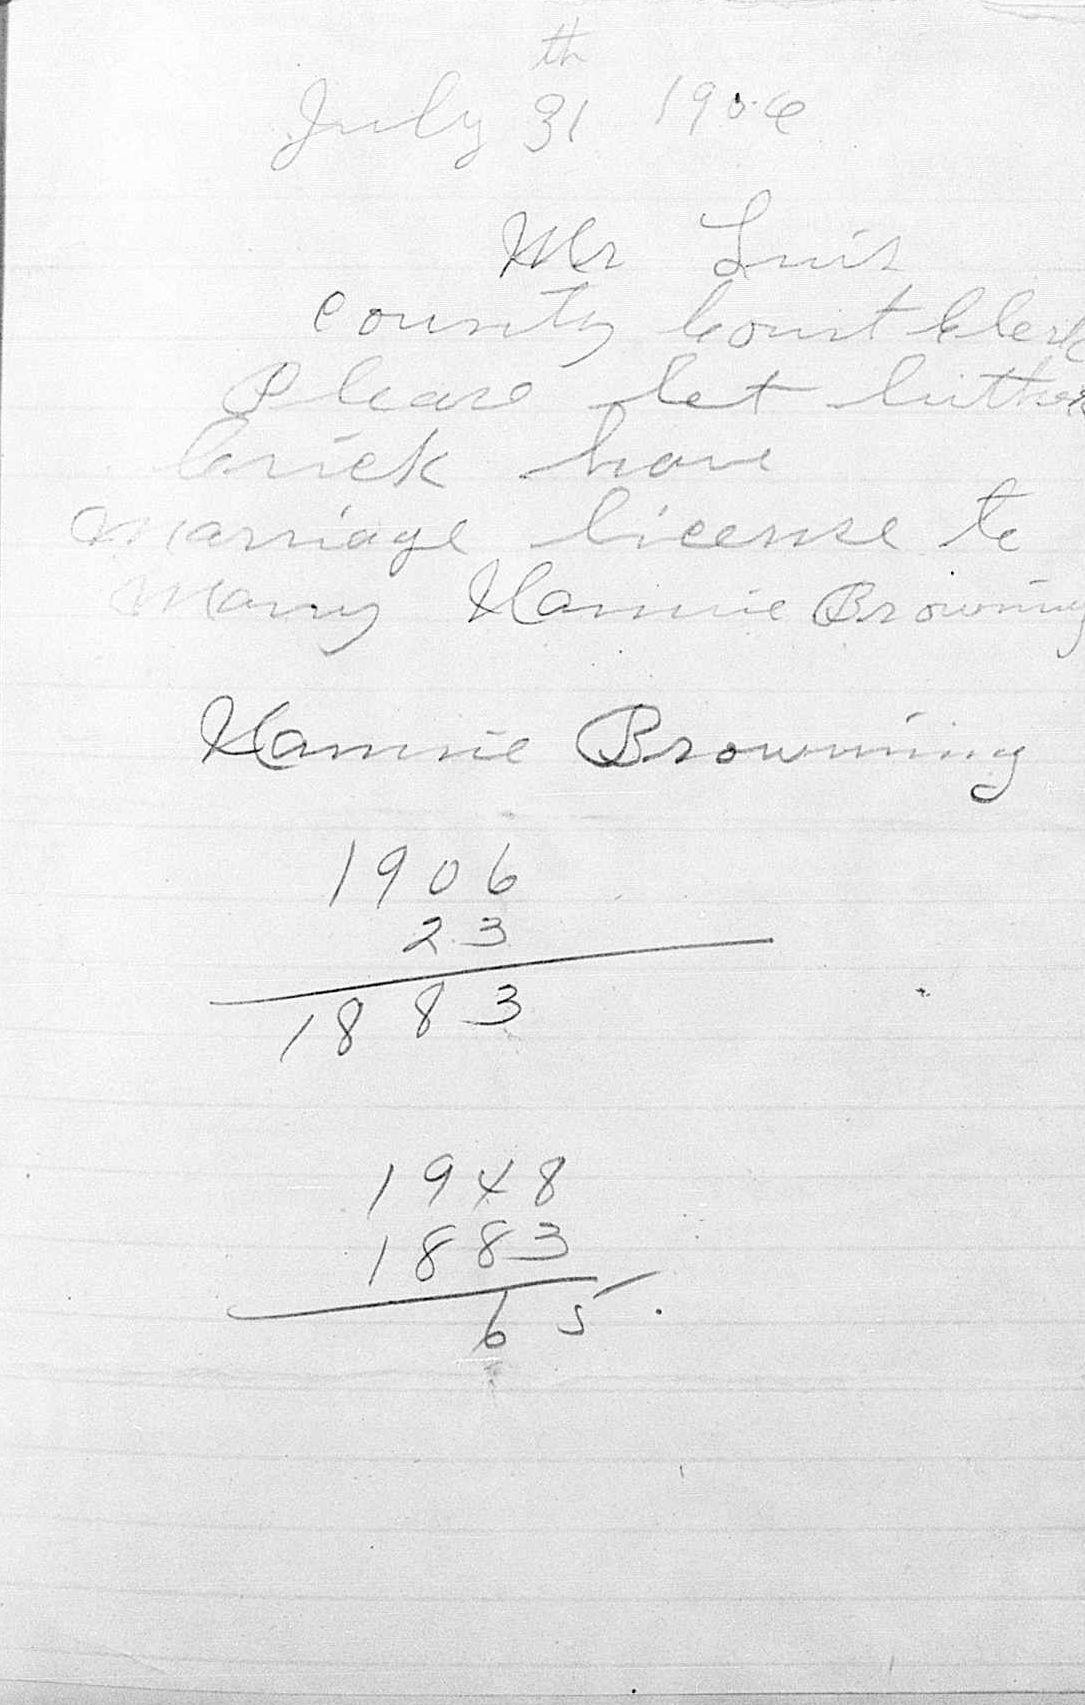 th
July 31 1906
Mr Luis
County Court Clerk
Please let Luther
Crick have
Marriage license to
Marry Nannie Browning
Nannie Browning
1906
23
1883
1948
1883
65